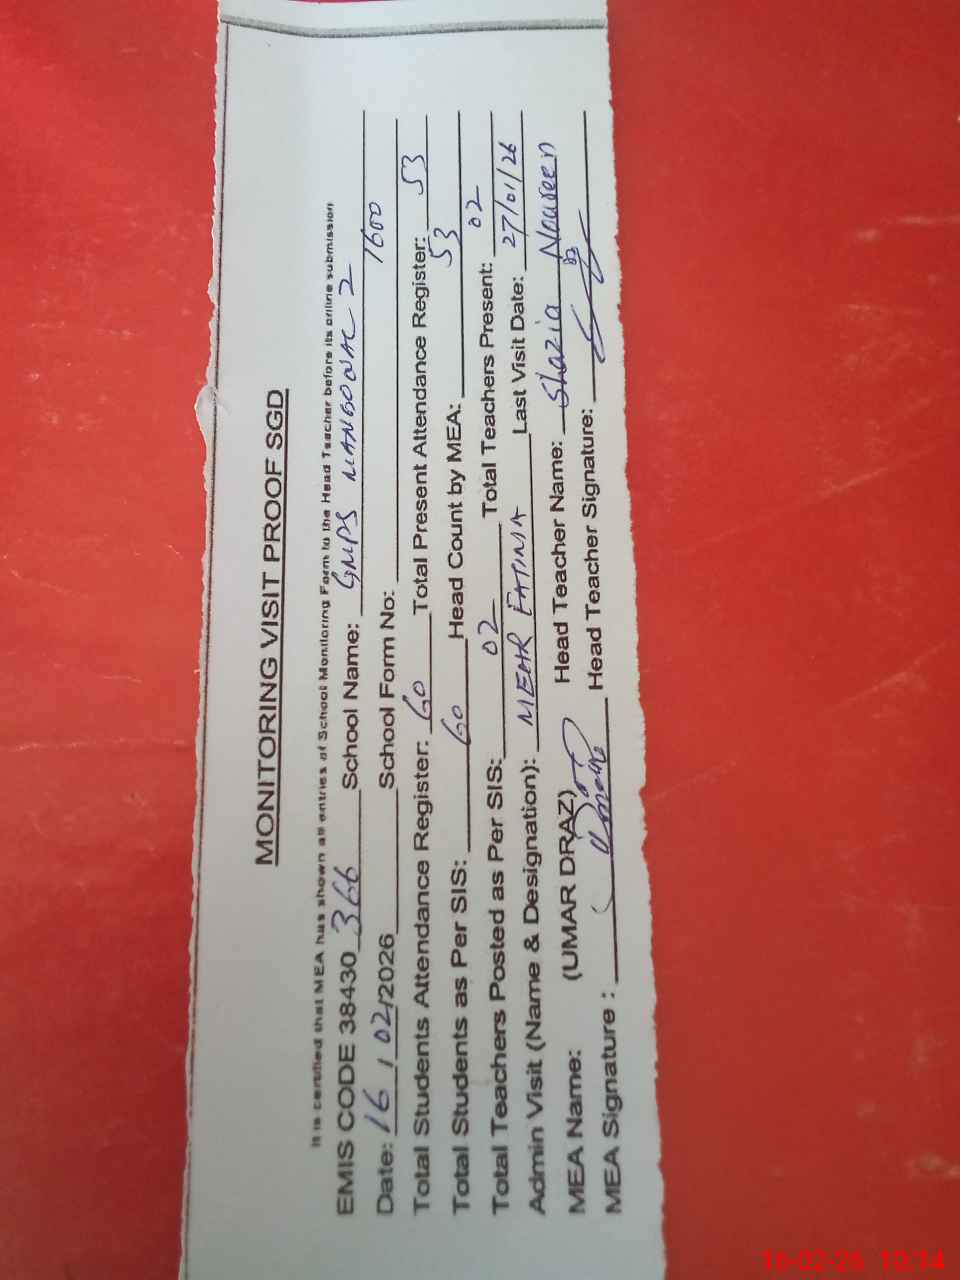 MONITORING VISIT PROOF SGD
It is certified that MEA has shown all entries of School Monitoring Form to the Head Teacher before its online submission
EMIS CODE 38430 366 School Name: GMPS MANGOWAL 2
Date: 16 / 02 /2026 School Form No: 1600
Total Students Attendance Register: 60 Total Present Attendance Register: 53
Total Students as Per SIS: 60 Head Count by MEA: 53
Total Teachers Posted as Per SIS: 02 Total Teachers Present: 02
Admin Visit (Name & Designation): MEHR FATIMA Last Visit Date: 27/01/26
MEA Name: (UMAR DRAZ) Head Teacher Name: Shazia Nouseen
MEA Signature : Head Teacher Signature:
16-02-26 10:14